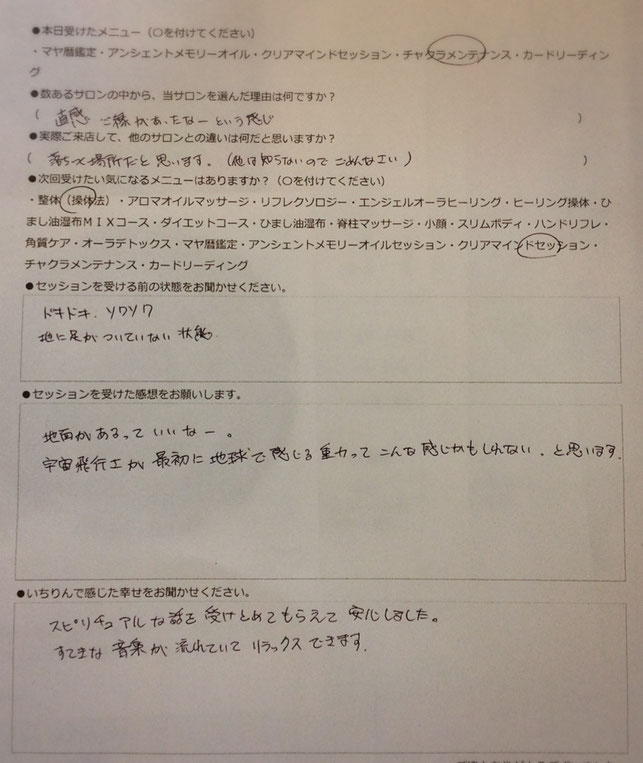 ●本日受けたメニュー（○を付けてください）
・マヤ暦鑑定・アンシェントメモリーオイル・クリアマインドセッション・チャクラメンテナンス・カードリーディン
グ
●数あるサロンの中から、当サロンを選んだ理由は何ですか？
（ 直感 ご縁があったなーという感じ ）
●実際ご来店して、他のサロンとの違いは何だと思いますか？
（ 落ちつく場所だと思います。（他は知らないのでごめんなさい） ）
●次回受けたい気になるメニューはありますか？（○を付けてください）
・整体（操体法）・アロマオイルマッサージ・リフレクソロジー・エンジェルオーラヒーリング・ヒーリング操体・ひ
まし油湿布ＭＩＸコース・ダイエットコース・ひまし油湿布・脊柱マッサージ・小顔・スリムボディ・ハンドリフレ・
角質ケア・オーラデトックス・マヤ暦鑑定・アンシェントメモリーオイルセッション・クリアマインドセッション・
チャクラメンテナンス・カードリーディング
●セッションを受ける前の状態をお聞かせください。
ドキドキ．ソワソワ
地に足がついていない状態．
●セッションを受けた感想をお願いします。
地面があるっていいなー。
宇宙飛行士が最初に地球で感じる重力ってこんな感じかもしれない．と思います．
●いちりんで感じた幸せをお聞かせください。
スピリチュアルな話を受けとめてもらえて安心しました。
すてきな音楽が流れていてリラックスできます．